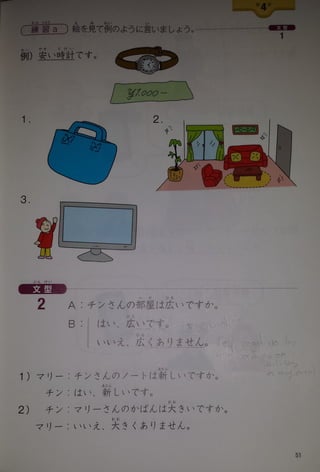 第4
練習a 絵を見て例のように言いましょう。
1
例）安い時計です。
¥1,000−
1.
2.
3.
文型
2 A：チンさんの部屋は広いですか。
B：はい、広いです。
いいえ、広くありません。
1）マリー：チンさんのノートは新しいですか。
チン：はい、新しいです。
2）チン：マリーさんのかばんは大きいですか。
マリー：いいえ、大きくありません。
51